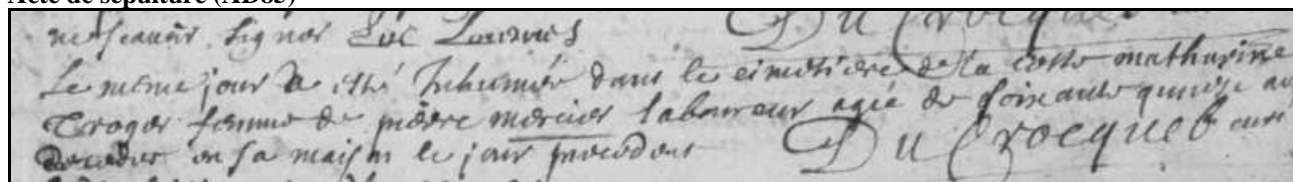 Acte de sépulture (AD85)
ne scavoir signer Luc Du Crocquet
Le meme jour a esté Inhumée dans le cimetiere de la cotte mathurine
Troger femme de pierre mercier laboureur agée de soixante quinze an
decedée en sa maison le jour precedent Du Crocquet curé